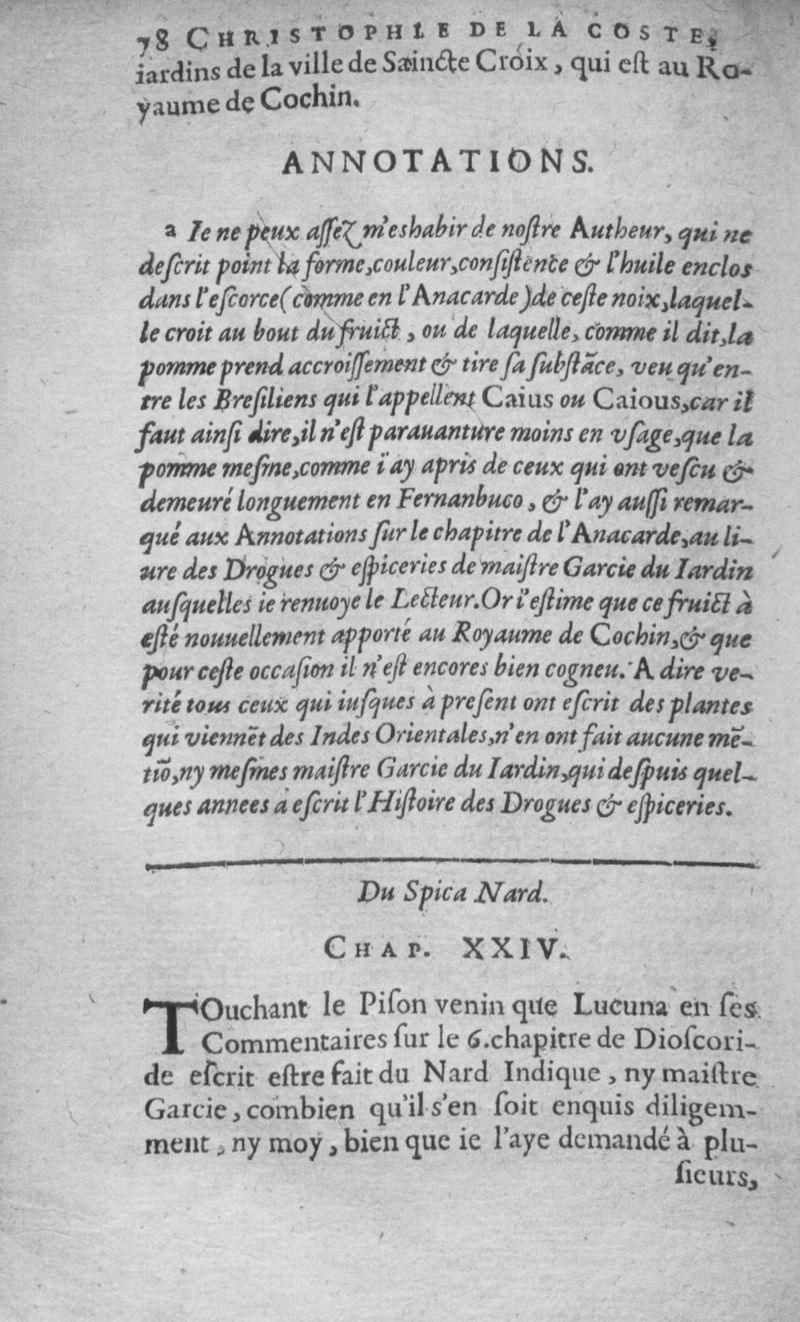 78 CHRISTOPHLE DE LA COSTE,
iardins de la ville de Saincte Croix, qui eſt au Ro-
yaume de Cochin.
ANNOTATIONS.
a Ie ne peux aſſez m'eshabir de noſtre Autheur, qui ne
deſcrit point la forme, couleur, conſiſtence & l'huile enclos
dans l'eſcorce (comme en l'Anacarde) de ceſte noix, laquel-
le croit au bout du fruict, ou de laquelle, comme il dit, la
pomme prend accroiſſement & tire ſa ſubſtãce, veu qu'en-
tre les Breſiliens qui l'appellent Caius ou Caious, car il
faut ainſi dire, il n'eſt parauanture moins en vſage, que la
pomme meſme, comme i'ay apris de ceux qui ont veſcu &
demeuré longuement en Fernanbuco, & l'ay auſſi remar-
qué aux Annotations ſur le chapitre de l'Anacarde, au li-
ure des Drogues & eſpiceries de maiſtre Garcie du Iardin
auſquelles ie renuoye le Lecteur. Or i'eſtime que ce fruict à
eſté nouuellement apporté au Royaume de Cochin, & que
pour ceſte occaſion il n'eſt encores bien cogneu. A dire ve-
rité tous ceux qui iuſques à preſent ont eſcrit des plantes
qui viennẽt des Indes Orientales, n'en ont fait aucune mẽ-
tiõ, ny meſmes maiſtre Garcie du Iardin, qui deſpuis quel-
ques annees à eſcrit l'Hiſtoire des Drogues & eſpiceries.
Du Spica Nard.
CHAP. XXIV.
TOuchant le Piſon venin que Lucuna en ſes
Commentaires ſur le 6. chapitre de Dioſcori-
de eſcrit eſtre fait du Nard Indique, ny maiſtre
Garcie, combien qu'il s'en ſoit enquis diligem-
ment, ny moy, bien que ie l'aye demandé à plu-
ſieurs,